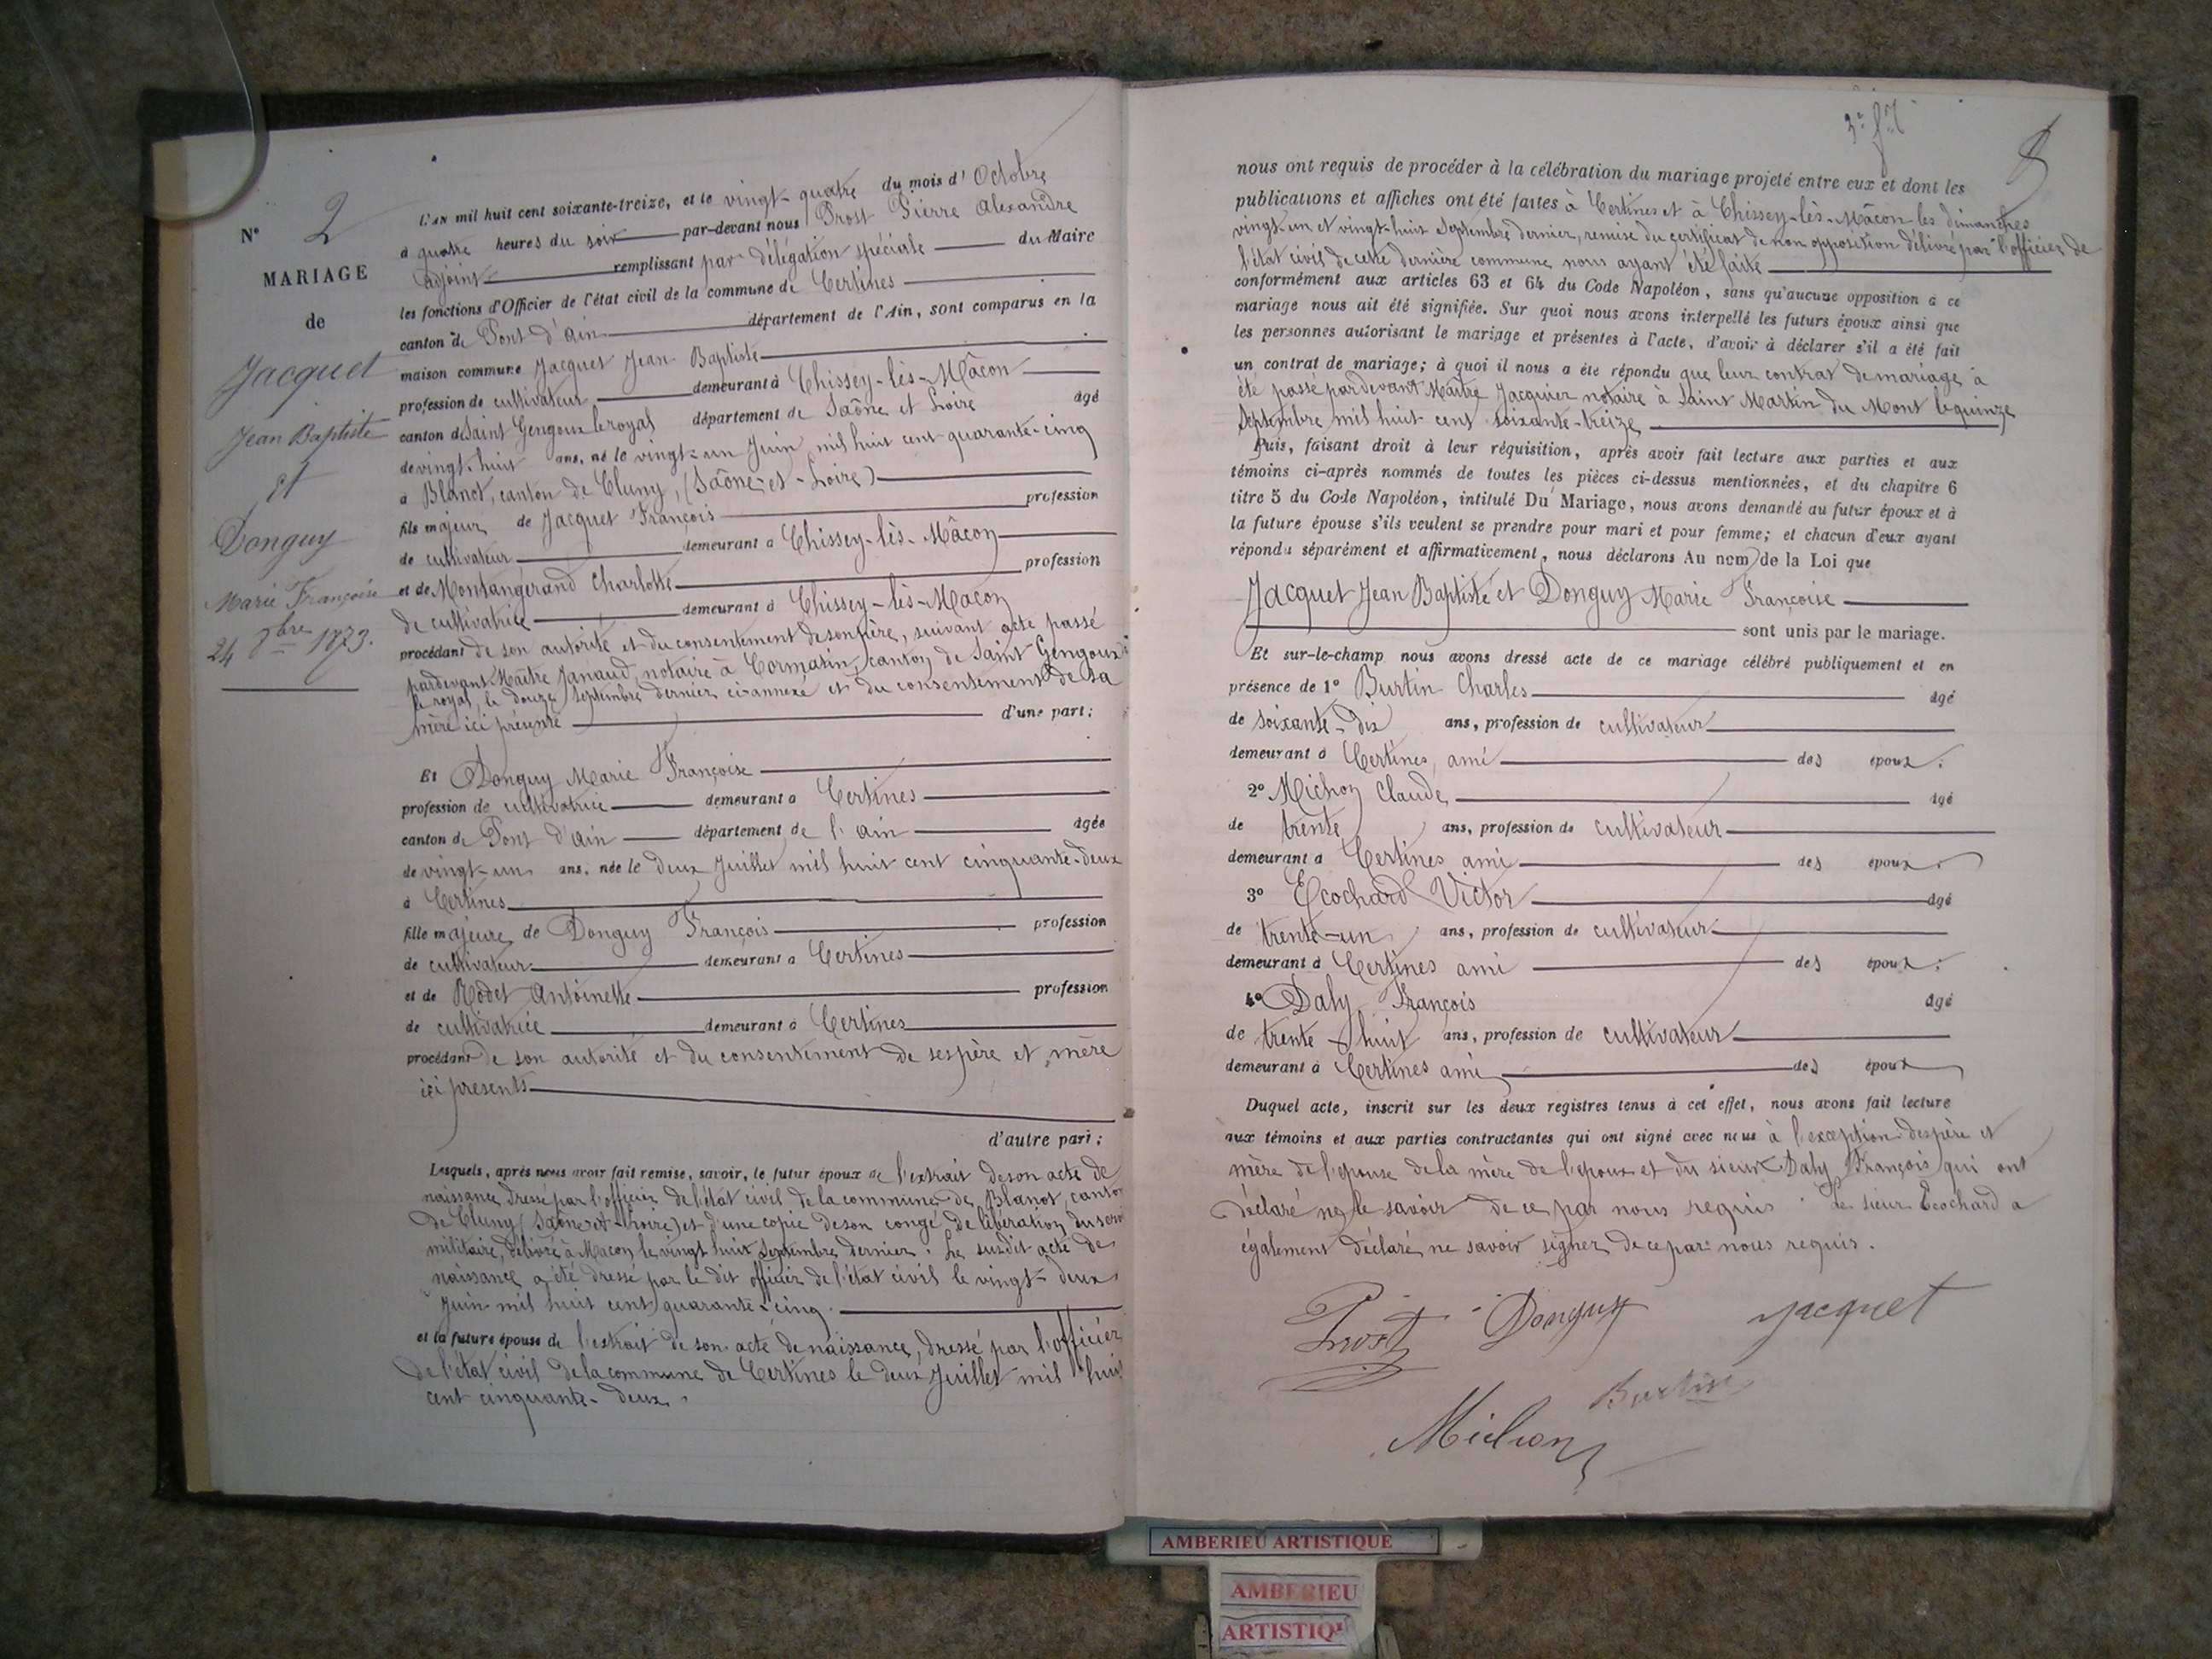 N° 2
MARIAGE
de
Jacquet
Jean Baptiste
et
Donguy
Marie Françoise
24 8bre 1873.
L'AN mil huit cent soixante-treize, et le vingt-quatre du mois d'Octobre
à quatre heures du soir par-devant nous Prost Pierre Alexandre
adjoint remplissant par délégation spéciale du Maire
les fonctions d'Officier de l'état civil de la commune de Certines
canton de Pont d'ain département de l'Ain, sont comparus en la
maison commune Jacquet Jean Baptiste
profession de cultivateur demeurant à Chissey-lès-Mâcon
canton de Saint Gengoux le royal département de Saône et Loire âgé
de vingt-huit ans, né le vingt-un Juin mil huit cent quarante-cinq
à Blanot, canton de Cluny, (Saône-et-Loire)
fils majeur de Jacquet François profession
de cultivateur demeurant à Chissey-lès-Mâcon
et de Montangerand Charlotte profession
de cultivatrice demeurant à Chissey-lès-Mâcon
procédant de son autorité et du consentement de son père, suivant acte passé
pardevant Maître Janaud, notaire à Cormatin, canton de Saint Gengoux
le royal, le douze Septembre dernier ci-annexé et du consentement de sa
mère ici présente d'une part;
Et Donguy Marie Françoise
profession de cultivatrice demeurant à Certines
canton de Pont d'ain département de l'ain âgée
de vingt-un ans, née le deux Juillet mil huit cent cinquante-deux
à Certines
fille majeure de Donguy François profession
de cultivateur demeurant à Certines
et de Rodet Antoinette profession
de cultivatrice demeurant à Certines
procédant de son autorité et du consentement de ses père et mère
ici presents
d'autre part;
Lesquels, après nous avoir fait remise, savoir, le futur époux de l'extrait de son acte de
naissance dressé par l'officier de l'état civil de la commune de Blanot, canton
de Cluny (Saône-et-Loire) et d'une copie de son congé de libération du servi
militaire, délivré à Macon le vingt huit Septembre dernier. Le susdit acte de
naissance a été dressé par le dit officier de l'état civil le vingt-deux
Juin mil huit cent quarante-cinq.
et la future épouse de l'extrait de son acte de naissance, dressé par l'officier
de l'état civil de la commune de Certines le deux Juillet mil huit
cent cinquante-deux.
8
nous ont requis de procéder à la célébration du mariage projeté entre eux et dont les
publications et affiches ont été faites à Certines et à Chissey-lès-Mâcon les dimanches
vingt-un et vingt-huit Septembre dernier, remise du certificat de non opposition délivré par l'officier de
l'état civil de cette dernière commune nous ayant été faite
conformément aux articles 63 et 64 du Code Napoléon, sans qu'aucune opposition à ce
mariage nous ait été signifiée. Sur quoi nous avons interpellé les futurs époux ainsi que
les personnes autorisant le mariage et présentes à l'acte, d'avoir à déclarer s'il a été fait
un contrat de mariage; à quoi il nous a été répondu que leur contrat de mariage a
été passé pardevant Maître Jacquier notaire à Saint Martin du Mont le quinze
Septembre mil huit cent soixante-treize
Puis, faisant droit à leur réquisition, après avoir fait lecture aux parties et aux
témoins ci-après nommés de toutes les pièces ci-dessus mentionnées, et du chapitre 6
titre 5 du Code Napoléon, intitulé Du Mariage, nous avons demandé au futur époux et à
la future épouse s'ils veulent se prendre pour mari et pour femme; et chacun d'eux ayant
répondu séparément et affirmativement, nous déclarons Au nom de la Loi que
Jacquet Jean Baptiste et Donguy Marie Françoise
sont unis par le mariage.
Et sur-le-champ nous avons dressé acte de ce mariage célébré publiquement et en
présence de 1° Burtin Charles âgé
de soixante-dix ans, profession de cultivateur
demeurant à Certines, ami des époux;
2° Michon Claude, âgé
de trente ans, profession de cultivateur
demeurant à Certines ami des époux.
3° Ecochard Victor âgé
de trente-un ans, profession de cultivateur
demeurant à Certines ami des époux;
4° Daly François âgé
de trente-huit ans, profession de cultivateur
demeurant à Certines ami des époux
Duquel acte, inscrit sur les deux registres tenus à cet effet, nous avons fait lecture
aux témoins et aux parties contractantes qui ont signé avec nous à l'exception des père et
mère de l'épouse de la mère de l'époux et du sieur Daly François qui ont
déclaré ne le savoir de ce par nous requis. Le sieur Ecochard a
également déclaré ne savoir signer de ce par nous requis.
Prost Donguy Jacquet
Burtin
Michon
AMBERIEU ARTISTIQUE
AMBERIEU
ARTISTIQ